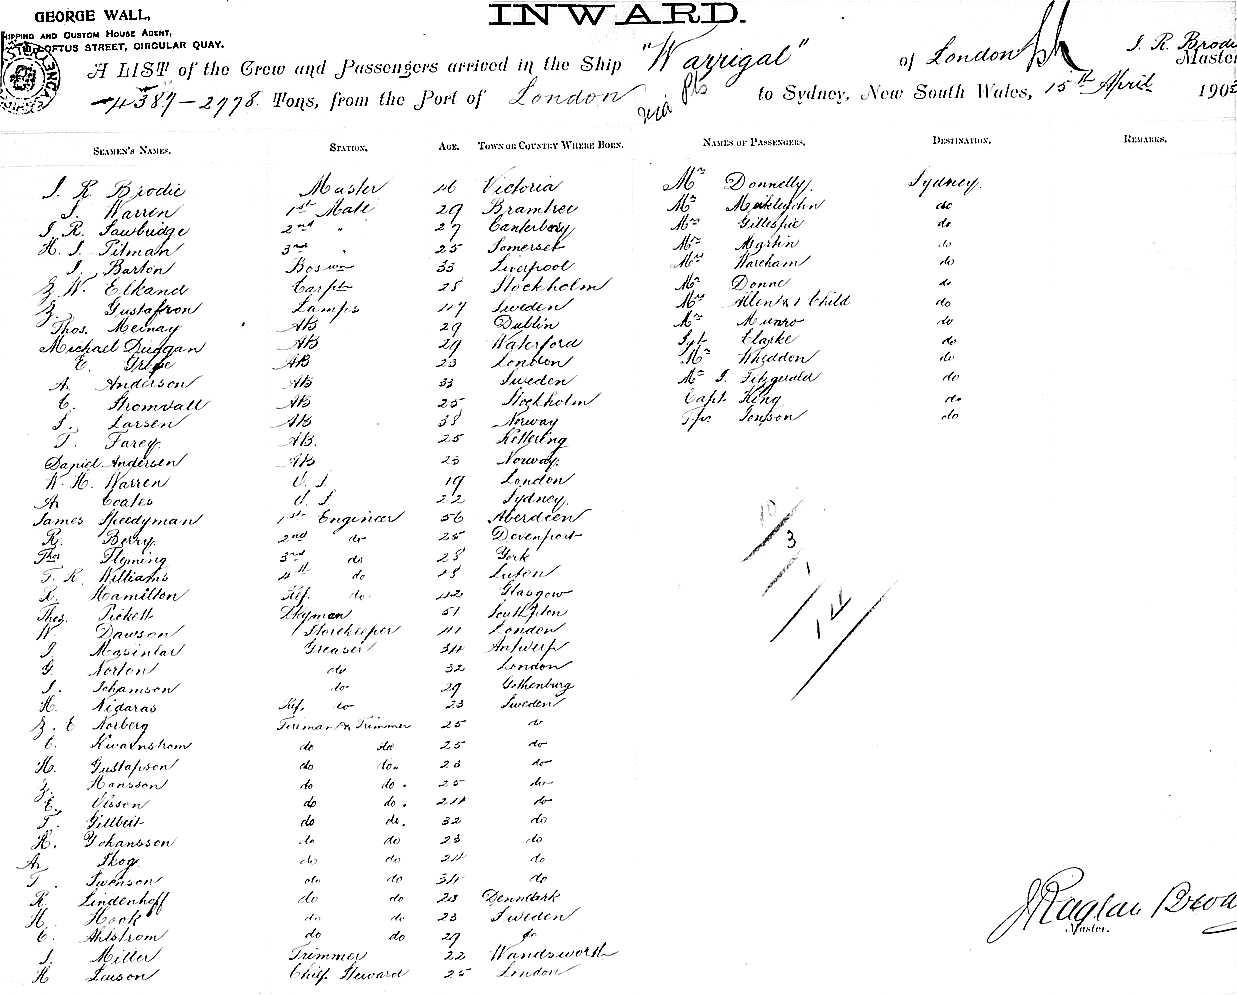 GEORGE WALL,
INWARD.
SHIPPING AND CUSTOM HOUSE AGENT,
LOFTUS STREET, CIRCULAR QUAY.
A LIST of the Crew and Passengers arrived in the Ship "Warrigal" of London J. R. Brodie Master
4387-2978 Tons, from the Port of London via pts to Sydney, New South Wales, 15th April 190
SEAMEN'S NAMES. STATION. AGE. TOWN OR COUNTRY WHERE BORN. NAMES OF PASSENGERS. DESTINATION. REMARKS.
J. R. Brodie Master 46 Victoria Mr Donnelly Sydney
J. Warren 1st Mate 29 Braintree Mr do
J. R. Sawbridge 2nd " 27 Canterbury Mr Gillespie do
H. J. Pitman 3rd " 25 Somerset Mr Martin do
J. Barton Bosun 33 Liverpool Mr Wareham do
Z. W. Elkand Carptr 28 Stockholm Mr Donne do
Z. Gustafson Lamps 47 Sweden Mrs Allen & 1 Child do
Thos. AB 29 Dublin Mr Munro do
Michael Duggan AB 29 Waterford Sgt. Clarke do
E. AB 23 London Mr Whiddon do
A. Anderson AB 33 Sweden Mr J. Fitzgerald do
C. Stromvall AB 25 Stockholm Capt. King do
J. Larsen AB 38 Norway Tpr. Jonson do
T. Farey AB. 25 Kettering
Daniel Andersen AB 23 Norway
W. H. Warren O. S 19 London
Ar Coates O. S 22 Sydney
James Speedyman 1st Engineer 56 Aberdeen
R. Berry 2nd do 25 Devenport
Thos Fleming 3rd do 28 York
T. R. Williams 4th do 28 Luton
R. Hamilton Ref. do 42 Glasgow
Thos. Pickett Dkyman 51 South'pton
W Dawson Storekeeper 41 London
J. Greaser 34 Antwerp
G. Norton do 32 London
J. Johanson do 29 Gothenburg
H. Nidaras Ref. do 23 Sweden
Z. E Norberg Fireman & Trimmer 25 do
C. Kvarnstrom do do 25 do
H. Gustafson do do. 23 do
Z. Hansson do do. 25 do
E. Olsson do do. 24 do
T. Gillbert do do. 32 do
H. Johansson do do 23 do
Ar Skog do do 24 do
T. Swenson do do 34 do
R. Lindenhoff do do 23 Denmark
H. Hook do do 23 Sweden
C. Ahlstrom do do 29 do
J. Miller Trimmer 22 Wandsworth
H Chief Steward 25 London
10
3
1
14
J Raglan Brodie
Master.